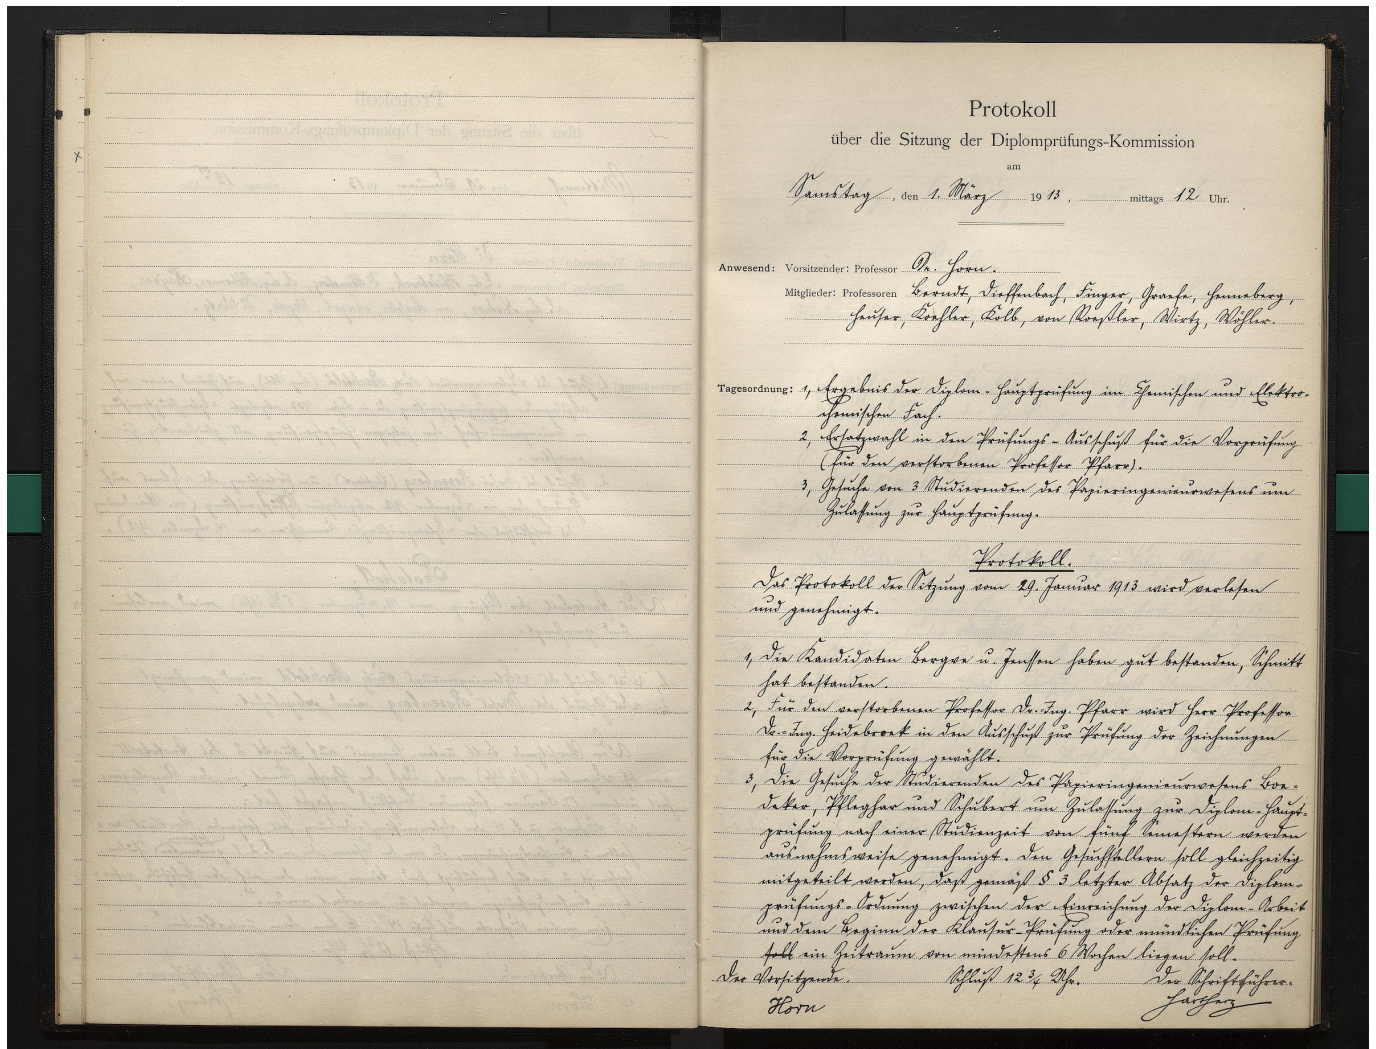 Protokoll
über die Sitzung der Diplomprüfungs-Kommission
am
Samstag, den 1. März 1913, mittags 12 Uhr.
Anwesend: Vorsitzender: Professor Dr. Horn.
Mitglieder: Professoren Berndt, Dieffenbach, Finger, Graefe, Henneberg,
Heuser, Koehler, Kolb, von Roeßler, Wirtz, Wöhler.
Tagesordnung: 1, Ergebnis der Diplom-Hauptprüfung im Chemischen und Elektro-
chemischen Fach.
2, Ersatzwahl in den Prüfungs-Ausschuß für die Vorprüfung
(für den verstorbenen Professor Pfarr).
3, Gesuche von 3 Studierenden des Papieringenieurwesens um
Zulassung zur Hauptprüfung.
Protokoll.
Das Protokoll der Sitzung vom 29. Januar 1913 wird verlesen
und genehmigt.
1, Die Kandidaten Bergve u. Jenssen haben gut bestanden, Schmitt
hat bestanden.
2, Für den verstorbenen Professor Dr.-Ing. Pfarr wird Herr Professor
Dr.-Ing. Heidebroek in den Ausschuß zur Prüfung der Zeichnungen
für die Vorprüfung gewählt.
3, Die Gesuche der Studierenden des Papieringenieurwesens Boe-
deker, Pfleghar und Schubert um Zulassung zur Diplom-Haupt-
prüfung nach einer Studienzeit von fünf Semestern werden
ausnahmsweise genehmigt. Den Gesuchstellern soll gleichzeitig
mitgeteilt werden, daß gemäß § 3 letzter Absatz der Diplom-
prüfungs-Ordnung zwischen der Einreichung der Diplom-Arbeit
und dem Beginn der Klausur-Prüfung oder mündlichen Prüfung
soll ein Zeitraum von mindestens 6 Wochen liegen soll.
Der Vorsitzende. Schluß 12 3/4 Uhr. Der Schriftführer.
Horn Hartherz